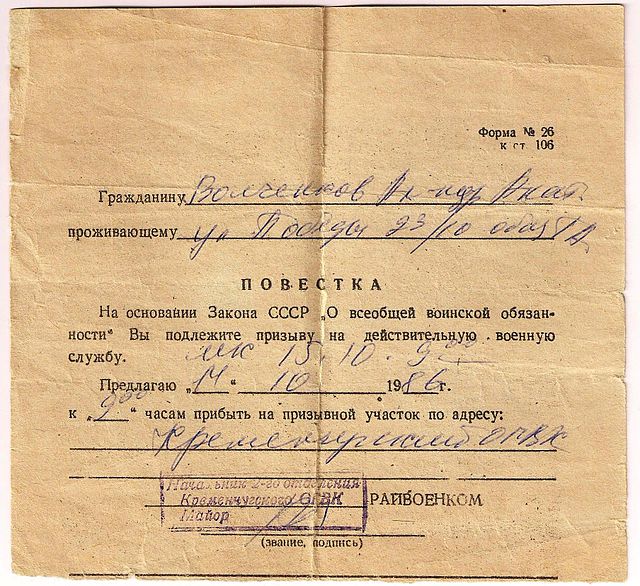 Форма № 26
к ст 106
Гражданину Волченков Ал-ндр Анат.
проживающему ул Победы 23/10
ПОВЕСТКА
На основании Закона СССР „О всеобщей воинской обязан-
ности" Вы подлежите призыву на действительную военную
службу. мк 15.10. 9 00
Предлагаю „14" 10 1986 г.
к „9 00" часам прибыть на призывной участок по адресу:
Кременчугский ОГВК
Начальник 2-го отделения
Кременчугского ОГВК
РАЙВОЕНКОМ
Майор
(звание, подпись)